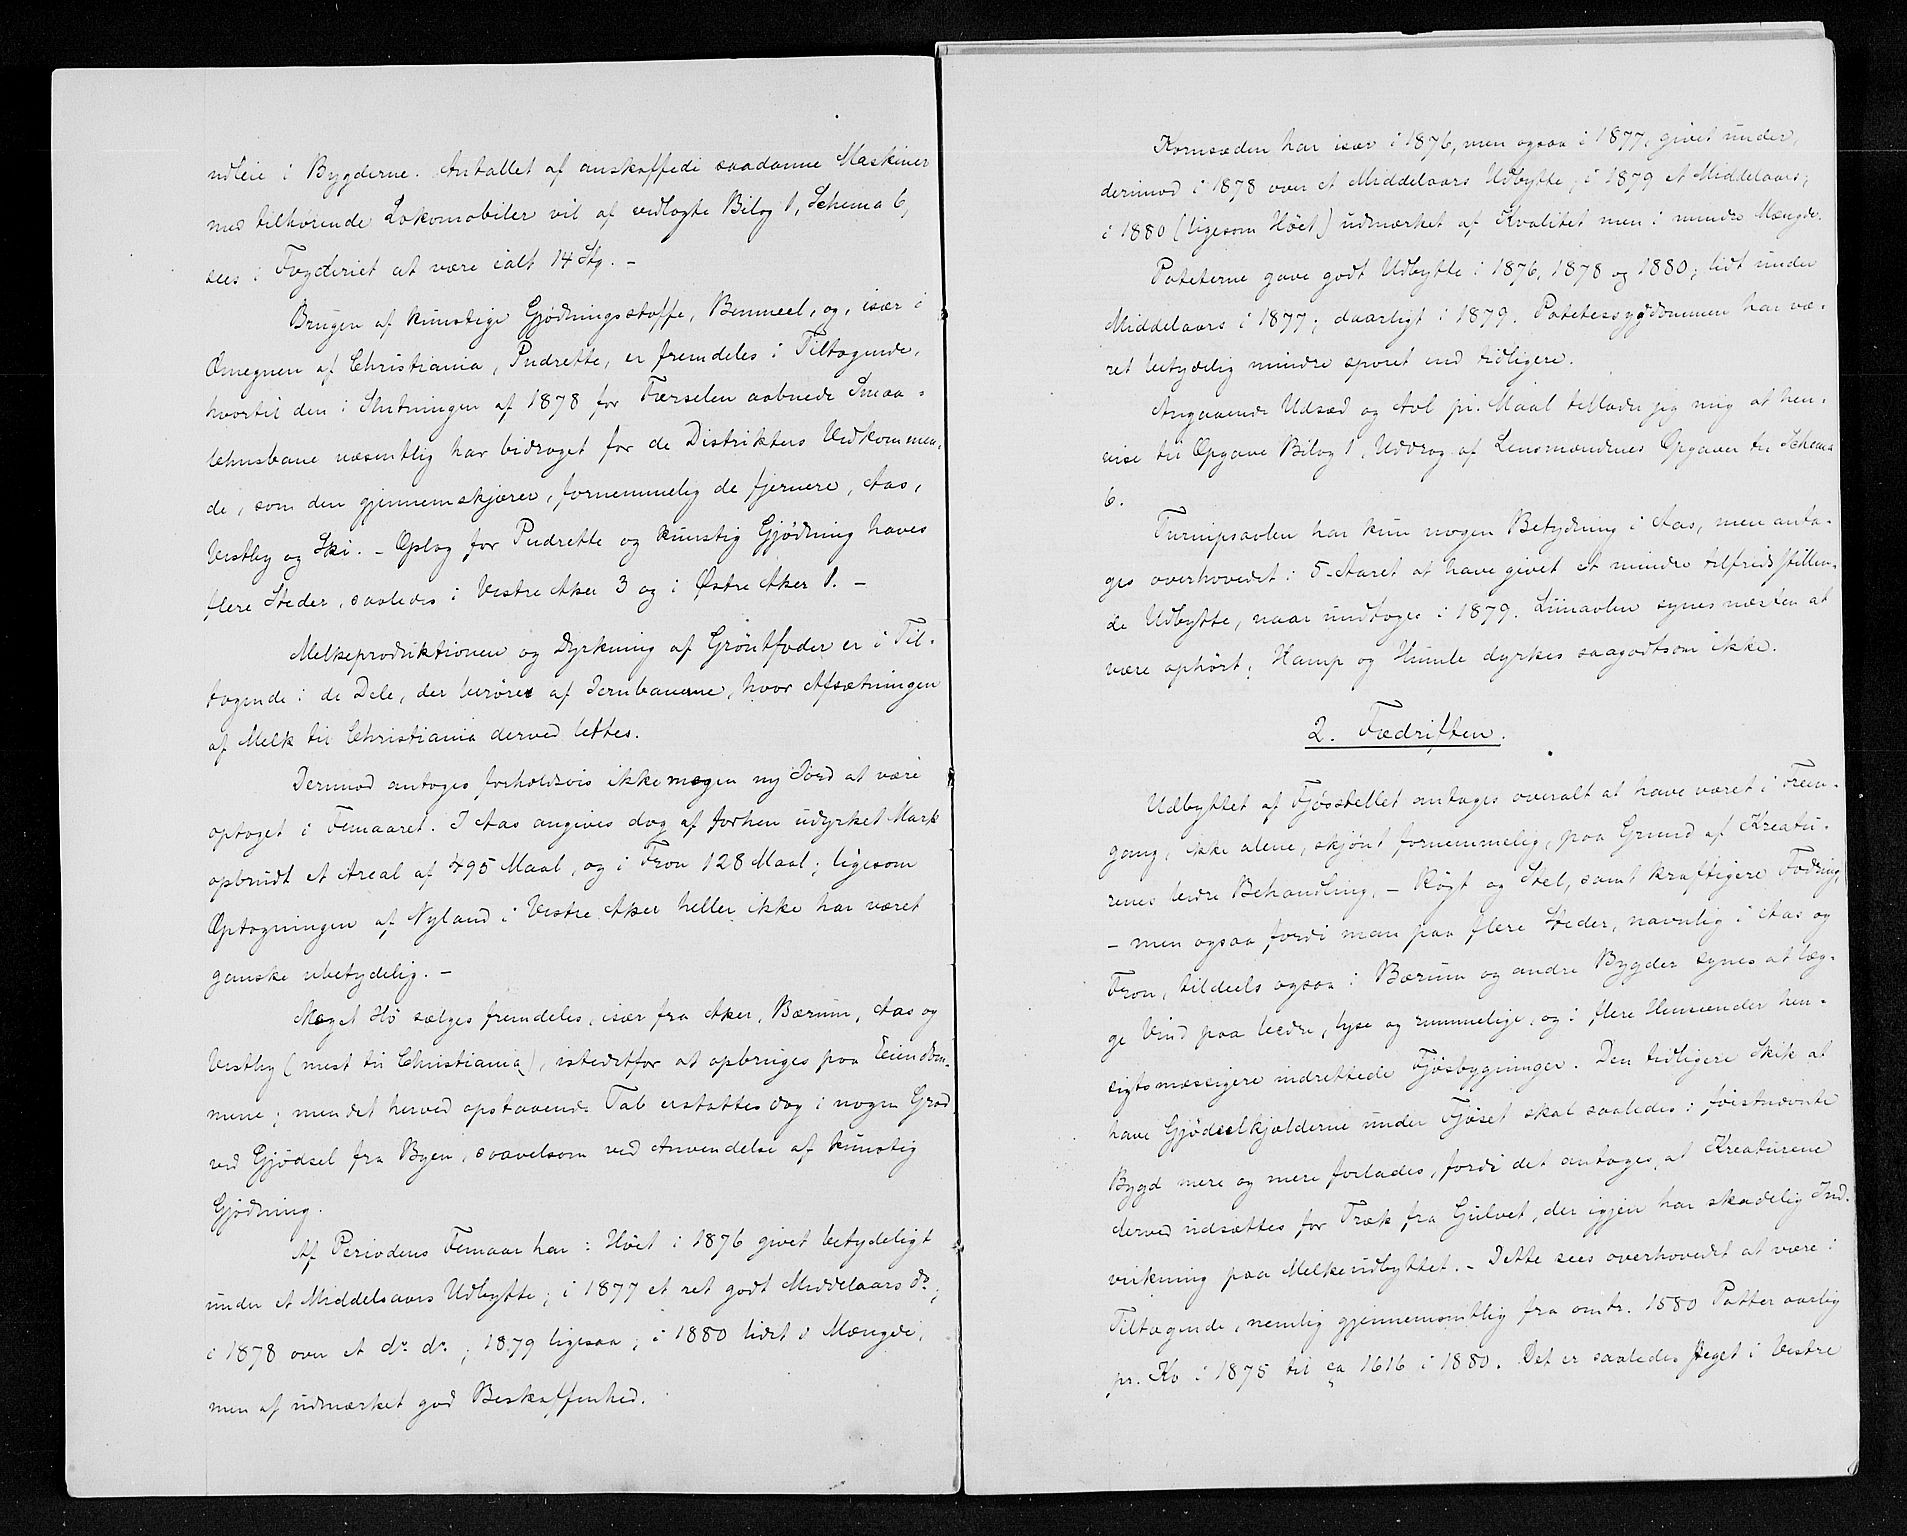 udleie i Bygderne. Antallet af anskaffede saadanne Maskiner
med tilhørende Lokomobiler vil af vedlagte Bilag 1, Schema 6,
sees i Fogderiet at være ialt 14 Stg. –
Brugen af kunstige Gjødningsstoffe, Benmeel, og, især i
Omegnen af Christiania, Pudrette, er fremdeles i Tiltagende,
hvortil den i Slutningen af 1878 for Færselen aabnede Smaa-
lehnsbane væsentlig har bidraget for de Distrikters Vedkommen-
de, som den gjennemskjærer, fornemmelig de fjernere, Aas,
Vestby og Ski. – Oplag for Pudrette og kunstig Gjødning haves
flere Steder, saaledes i Vestre Aker 3 og i Østre Aker 1. –
Melkeproduktionen og Dyrkning af Grøntfoder er i Til-
tagende i de Dele, der berøres af Jernbanerne, hvor Afsætningen
af Melk til Christiania derved lettes.
Derimod antages forholdsvis ikke megen ny Jord at være
optaget i Femaaret. I Aas angives dog af forhen udyrket Mark
opbrudt et Areal af 495 Maal, og i Fron 128 Maal; ligesom
Optagningen af Nyland i Vestre Aker heller ikke har været
ganske ubetydelig. –
Meget Hø sælges fremdeles, især fra Aker, Bærum, Aas og
Vestby (mest til Christiania), istedetfor at opbruges paa Eiendom-
mene; men det herved opstaaende Tab erstattes dog i nogen Grad
ved Gjødsel fra Byen, saavelsom ved Anvendelse af kunstig
Gjødning.
Af Periodens Femaar har: Høet i 1876 givet betydeligt
under et Middelsaars Udbytte; i 1877 et ret godt Middelaars do;
i 1878 over et do do; 1879 ligesaa; i 1880 lidet i Mængde,
men af udmærket god Beskaffenhed.
Kornsæden har især i 1876, men ogsaa i 1877, givet under,
derimod i 1878 over et Middelaars Udbytte; i 1879 et Middelaars;
i 1880 (ligesom Høet) udmærket af Kvalitet men i mindre Mængde.
Poteterne gave godt Udbytte i 1876, 1878 og 1880; lidt under
Middelaars i 1877; daarligt i 1879. Potetessygdommen har væ-
ret betydelig mindre sporet end tidligere.
Angaaende Udsæd og Avl pr. Maal tillader jeg mig at hen-
vise til Opgave Bilag 1, Uddrag af Lensmændenes Opgaver til Schema
6.
Turnipsavlen har kun nogen Betydning i Aas, men anta-
ges overhovedet i 5-Aaret at have givet et mindre tilfredsstillen-
de Udbytte, naar undtages i 1879. Linavlen synes næsten at
være ophørt; Hamp og Humle dyrkes saagodtsom ikke.
2. Fædriften.
Udbyttet af Fjøsstellet antages overalt at have været i Frem-
gang, ikke alene, skjønt fornemmelig, paa Grund af Kreatu-
renes bedre Behandling, – Røgt og Stel, samt kraftigere Fodring,
– men ogsaa fordi man paa flere Steder, navnlig i Aas og
Fron, tildeels ogsaa i Bærum og andre Bygder synes at læg-
ge Vind paa bedre, lyse og rummelige, og i flere Henseender hen-
sigtsmæssigere indrettede Fjøsbygninger. Den tidligere Skik at
have Gjødselkjælderne under Fjøset skal saaledes i førstnævnte
Bygd mere og mere forlades, fordi det antages, at Kreaturene
derved udsættes for Træk fra Gulvet, der igjen har skadelig Ind-
virkning paa Melkeudbyttet. – Dette sees overhovedet at være i
Tiltagende, nemlig gjennemsnitlig fra omtr. 1580 Potter aarlig
pr. Ko i 1875 til ca 1616 i 1880. Det er saaledes steget i Vestre